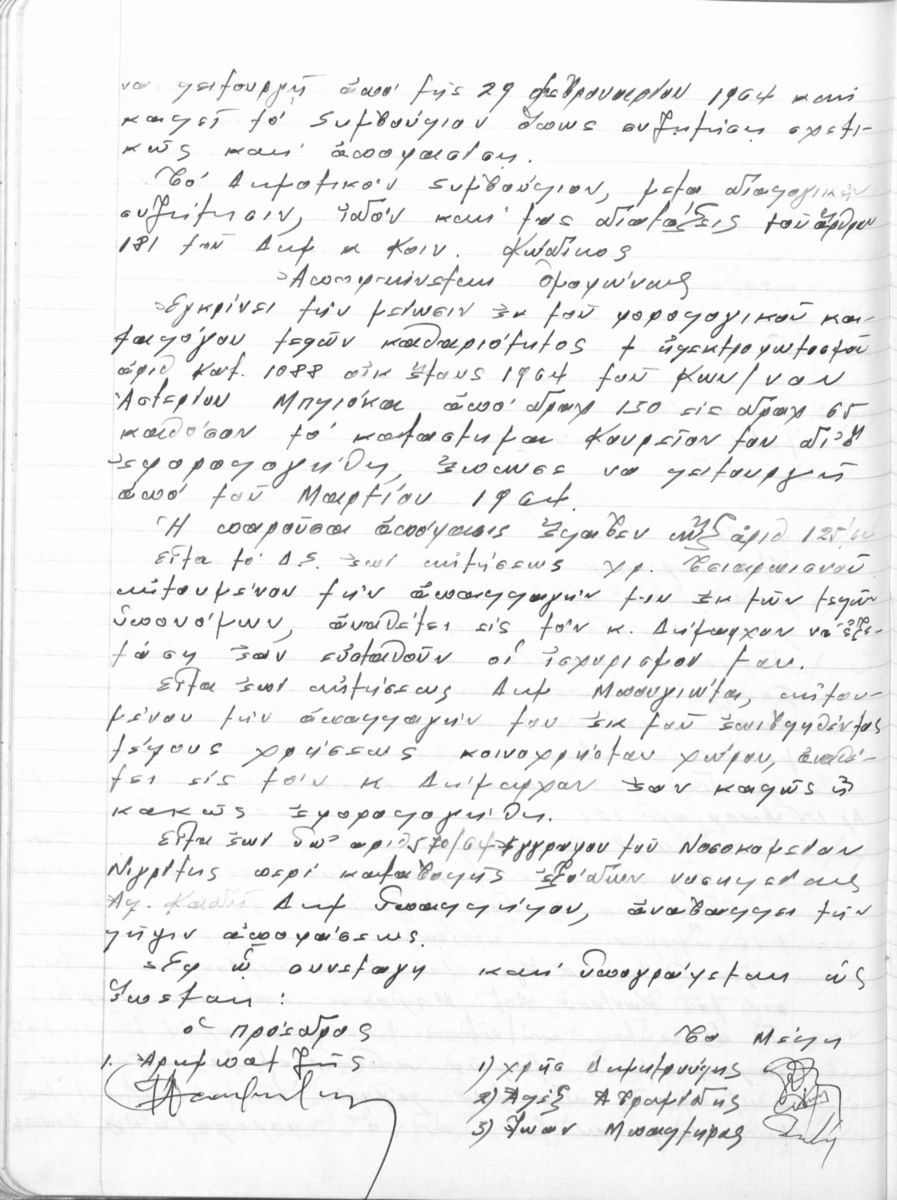 να λειτουργῇ ἀπό τῆς 29 Φεβρουαρίου 1964 καί
καλεῖ τό Συμβούλιον ὅπως συζητήσῃ σχετι-
κῶς καί ἀποφασίσῃ.
Τό Δημοτικόν Συμβούλιον, μετά διαλογικήν
συζήτησιν, ἰδόν καί τάς διατάξεις τοῦ ἄρθρου
181 τοῦ Δημ κ Κοιν. Κώδικος
Ἀποφαίνεται ὁμοφώνως
Ἐγκρίνει τήν μείωσιν ἐκ τοῦ φορολογικοῦ κα-
ταλόγου τελῶν καθαριότητος + ἠλεκτροφωτισμοῦ
ἀριθ κατ. 1088 οἰκ ἔτους 1964 τοῦ Κων/νου
Ἀστερίου Μπλιόκα ἀπό δραχ 130 εἰς δραχ 65
καθόσον τό κατάστημα Κουρεῖον του δι' ὅ
ἐφορολογήθη, ἔπαυσε νά λειτουργῇ
ἀπό τοῦ Μαρτίου 1964.
Ἡ παροῦσα ἀπόφασις ἔλαβεν αὔξ ἀριθ 125/64
Εἶτα τό Δ.Σ. ἐπί αἰτήσεως χρ.
αἰτουμένου τήν ἀπαλλαγήν του ἐκ τῶν τελῶν
ὑπονόμων, ἀναθέτει εἰς τόν κ. Δήμαρχον νά ἐξε-
τάσῃ ἐάν εὐσταθοῦν οἱ ἰσχυρισμοί του.
Εἶτα ἐπί αἰτήσεως Δημ Μπουγιώτα, αἰτου-
μένου τήν ἀπαλλαγήν του ἐκ τοῦ ἐπιβληθέντος
τέλους χρήσεως κοινοχρήστου χώρου, ἀναθέ-
τει εἰς τόν κ Δήμαρχον ἐάν καλῶς ἤ
κακῶς ἐφορολογήθη.
Εἶτα ἐπί ὑπ' ἀριθ 570/64 ἐγγράφου τοῦ Νοσοκομείου
Νιγρίτης περί καταβολῆς ἐξόδων νοσηλείας
Δημ ὑπαλλήλου, ἀναβάλλει τήν
λῆψιν ἀποφάσεως.
Ἐφ ᾧ συνετάγη καί ὑπογράφεται ὡς
ἕπεται:
Ὁ Πρόεδρος Τά Μέλη
1. Ἀρημπατζῆς 1) Χρῆσ Δημητρούλης
2) Ἀλέξ Ἀβραμίδης
3) Ἰωάν Μπαλτήρας